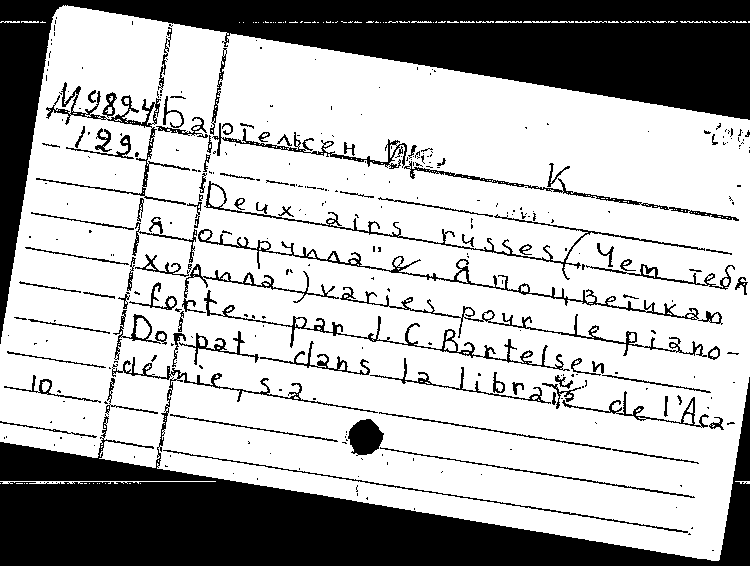 М 989-4 Бартельсен,
129. К
Deux airs russes („Чем тебя
я огорчила" & „Я по цветикам
ходила") varies pour le piano-
forte... par J. C. Bartelsen.
Dorpat, dans la librairie de l'Aca-
démie, s.a.
10.